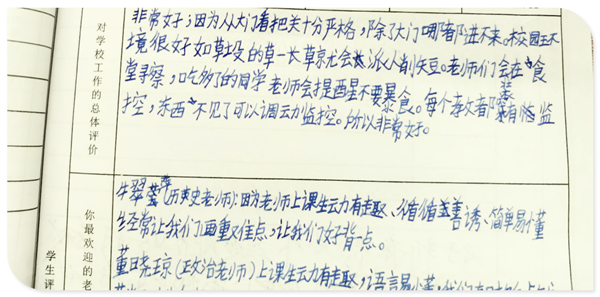 对学校工作的总体评价
非常好；因为从大门看把关十分严格，除了大门哪都进不来。校园环
境很好如草坡的草一长草尤会派人削矢豆。老师们会在“食
堂寻察，吃够了的同学老师会提醒星不要暴食。每个教者都装有监
控，东西“不见了可以调云力监控。所以非常好。
你最欢迎的老
学生评
牛翠莹（历史老师）：因为老师上课生云力有趣、循循善诱、简单易懂
经常让我们画重难点，让我们好背一点。
董晓琼（政治老师）上课生云力有趣，语言易小董，